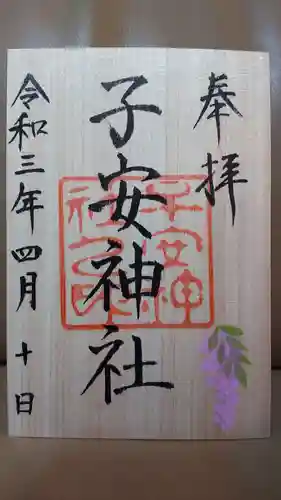 奉拝
子安神社
子安神社之印
令和三年四月十日